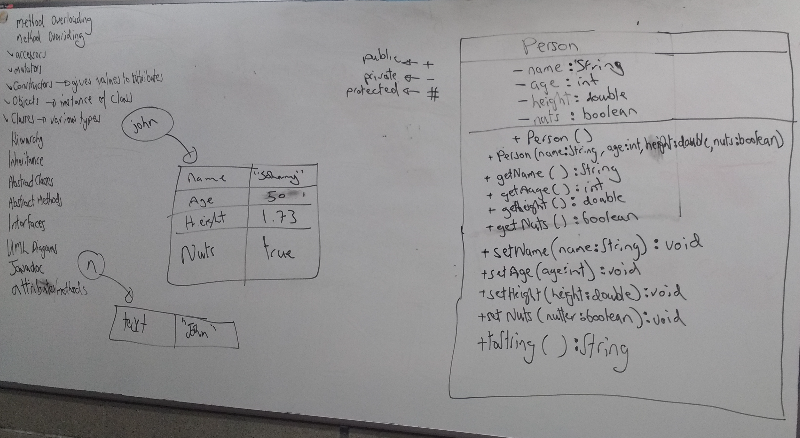 method Overloading
method Overriding
✓ accessors
✓ mutators
✓ Constructors → gives values to attributes
✓ Objects → instance of Class
✓ Classes → various types
Hierarchy
Inheritance
Abstract Classes
Abstract Methods
Interfaces
UML Diagrams
Javadoc
attributes/methods
john
name
Age
50
Height
1.73
Nuts
true
n
text
"John"
public ← +
private ← -
protected ← #
Person
- name : String
- age : int
- height : double
- nuts : boolean
+ Person ( )
+ Person (name:String, age:int, height:double, nuts:boolean)
+ getName ( ) : String
+ getAage ( ) : int
+ getHeight ( ) : double
+ get Nuts ( ) : boolean
+ setName (name:String) : void
+ setAge (age:int) : void
+ setHeight (height:double) : void
+ set Nuts (nutter:boolean) : void
+ toString ( ) : String